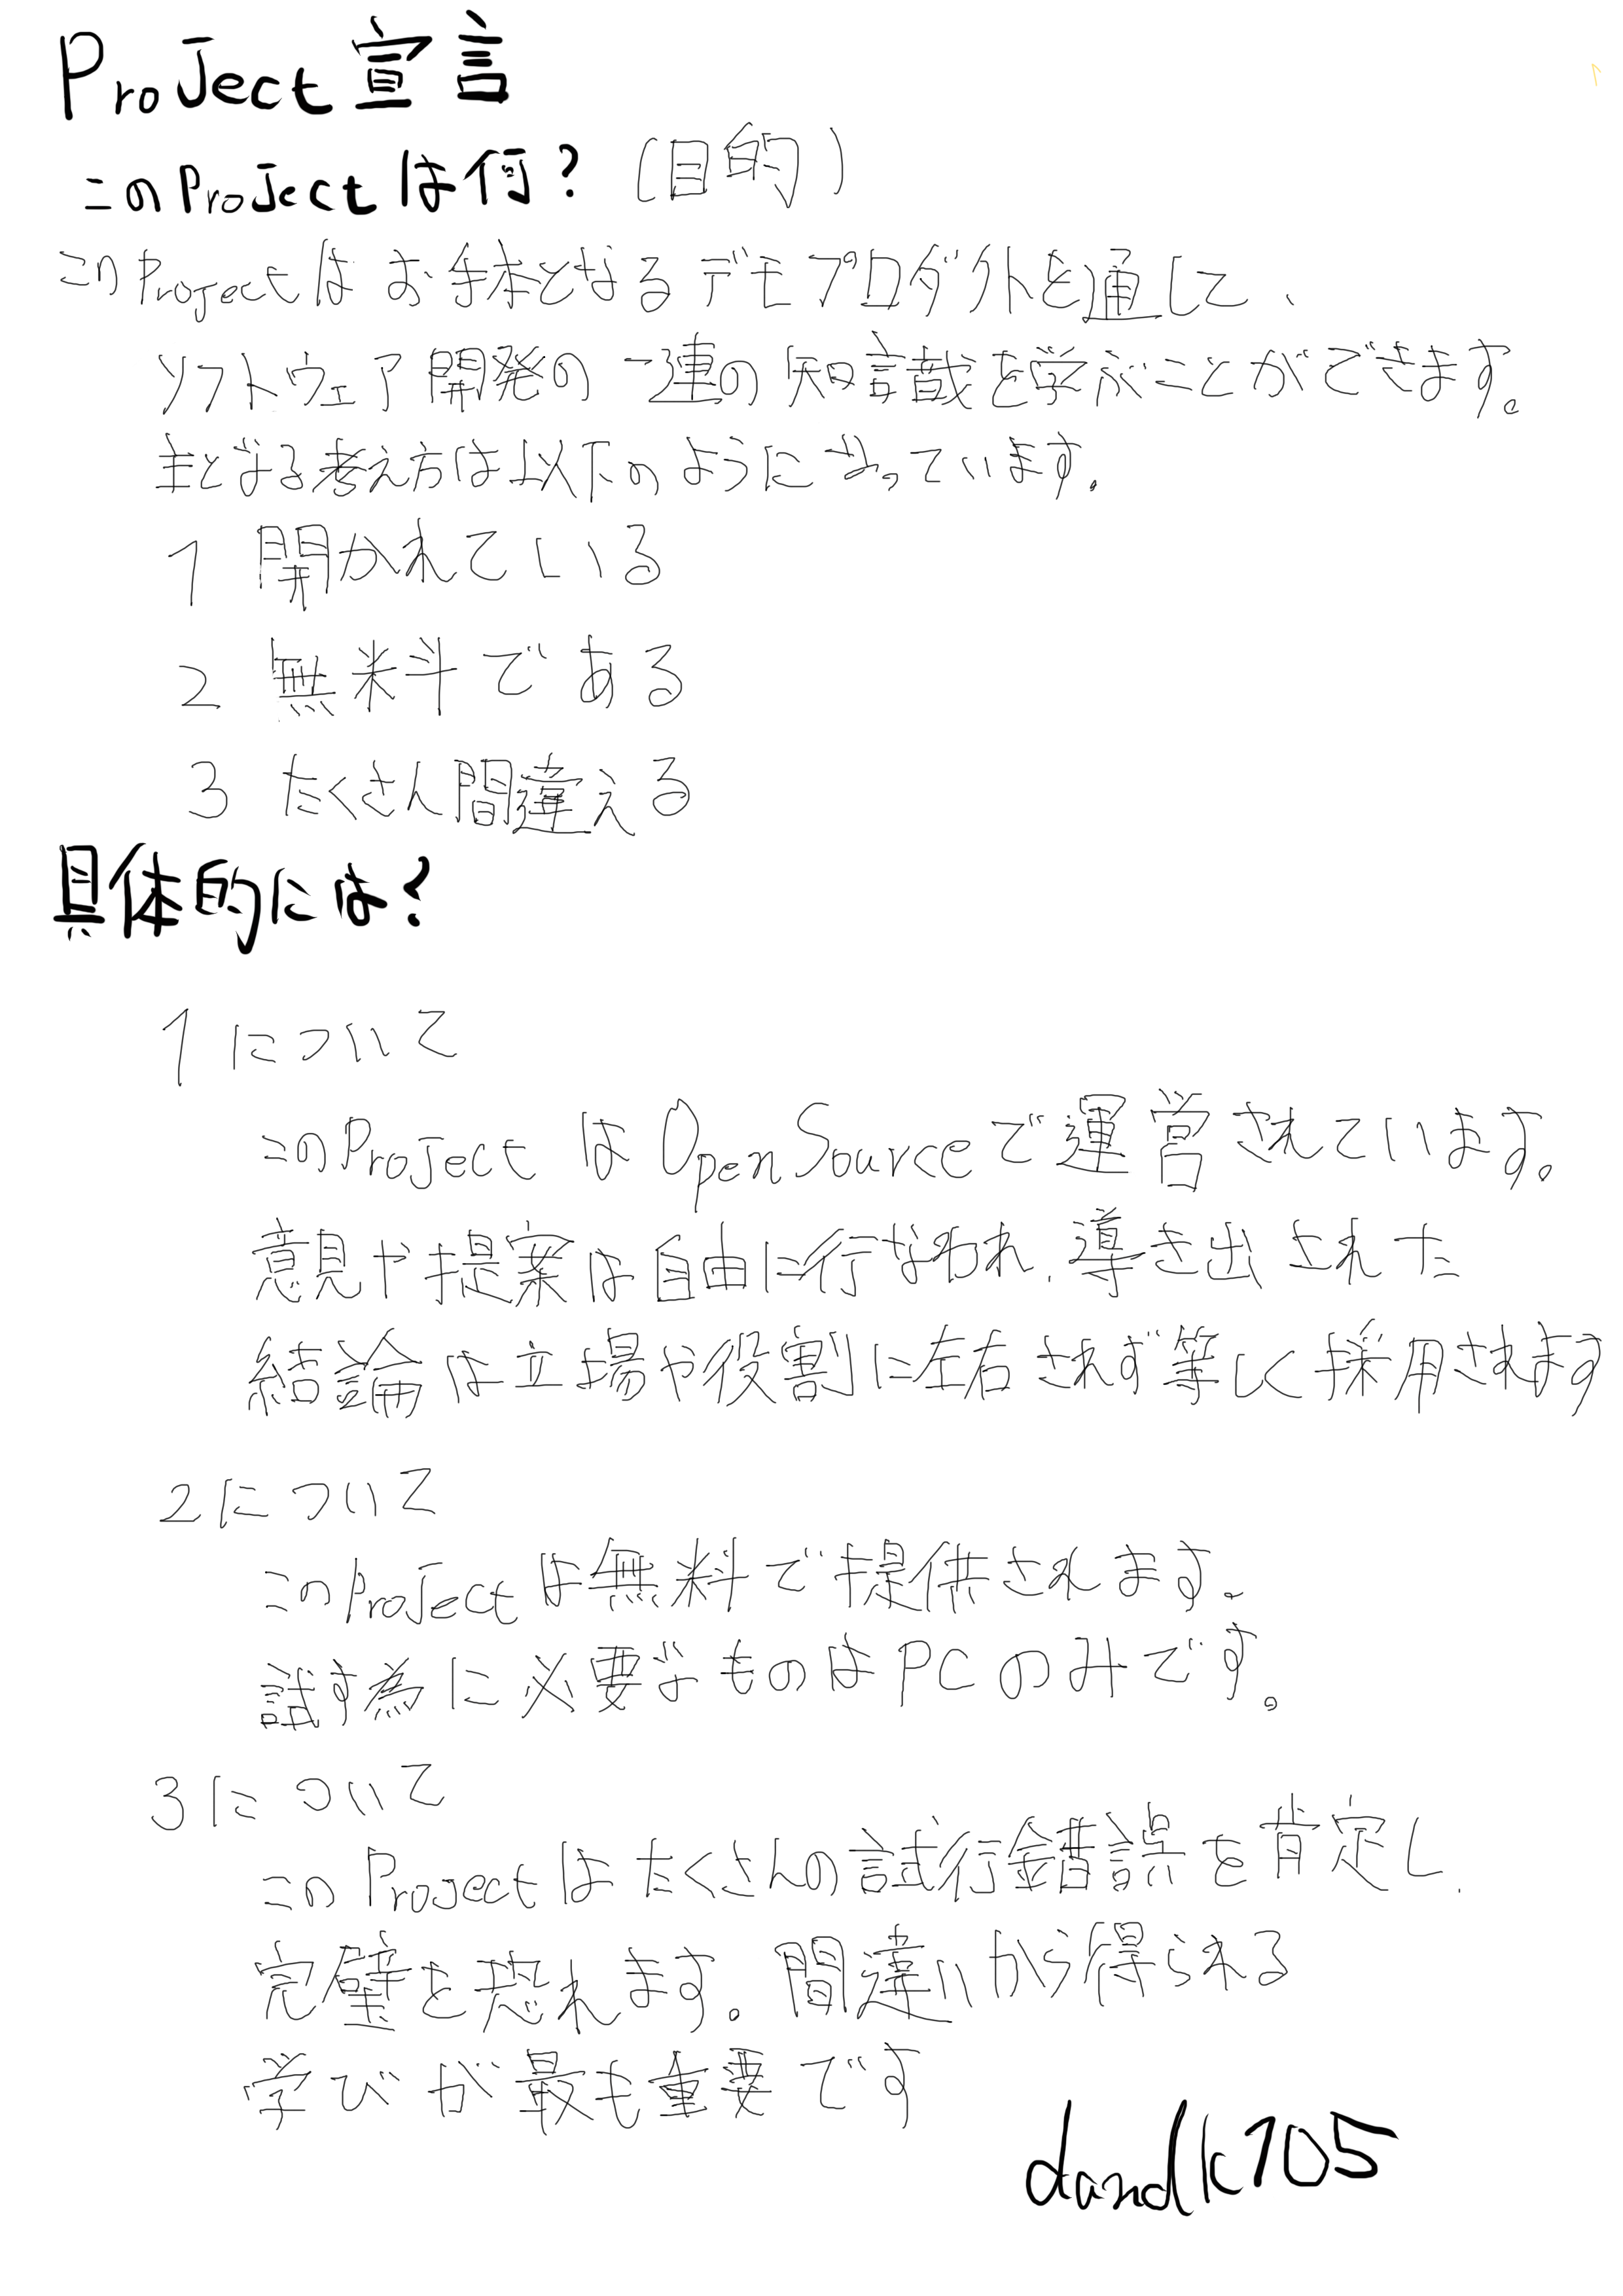 ProJect宣言
このProJectは何？（目的）
このProJectはお手本となるデモプロダクトを通して、
ソフトウェア開発の一連の知識を学ぶことができます。
主となる考え方は以下のようになっています.
1 開かれている
2 無料である
3 たくさん間違える
具体的には？
1について
このProJectはOpenSourceで運営されています。
意見や提案は自由に行なわれ、導き出された
結論は立場や役割に左右されず等しく採用されます
2について
このProJectは無料で提供されます、
試す為に必要なものはPCのみです。
3について
このProJectはたくさんの試行錯誤を肯定し、
完璧を恐れます。間違いから得られる
学びが最も重要です
dandk105